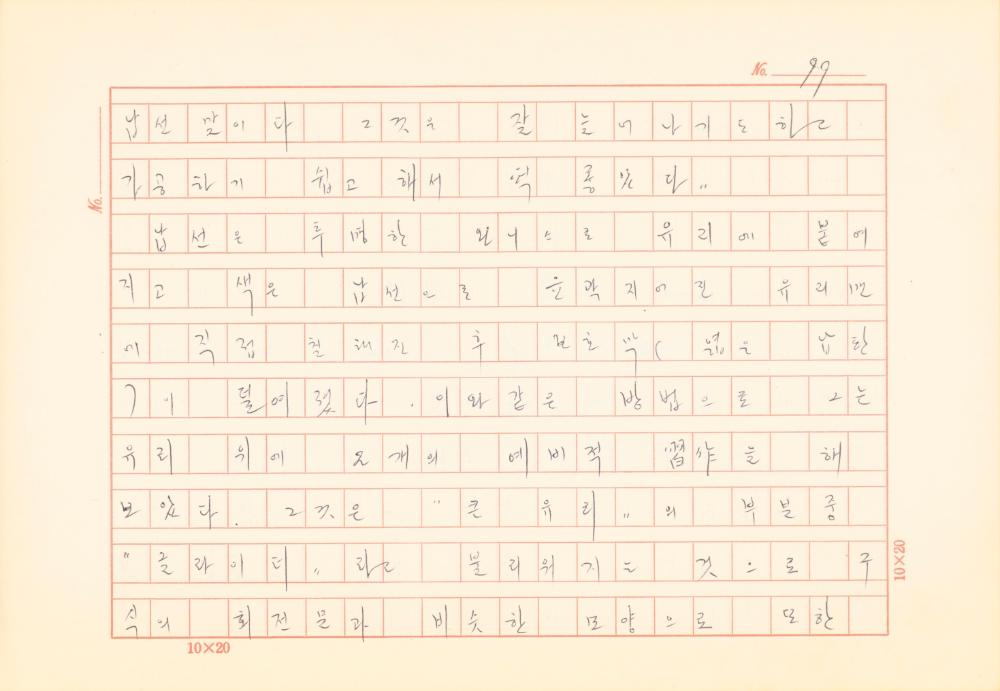 No. 97
납선 말이다 그것은 잘 늘어나기도 하고
가공하기 쉽고 해서 썩 좋았다"
납선은 투명한 와니스로 유리에 붙여
지고 색은 납선으로 윤곽지어진 유리면
에 직접 칠해진 후 보호막( 넓은 납판
)이 덮여졌다. 이와같은 방법으로 그는
유리 위에 오개의 예비적 習작을 해
보았다. 그것은 "큰 유리"의 부분중
"글라이더"라고 불리워지는 것으로 주
식의 회전문과 비슷한 모양으로 또한
No.
10×20
10×20